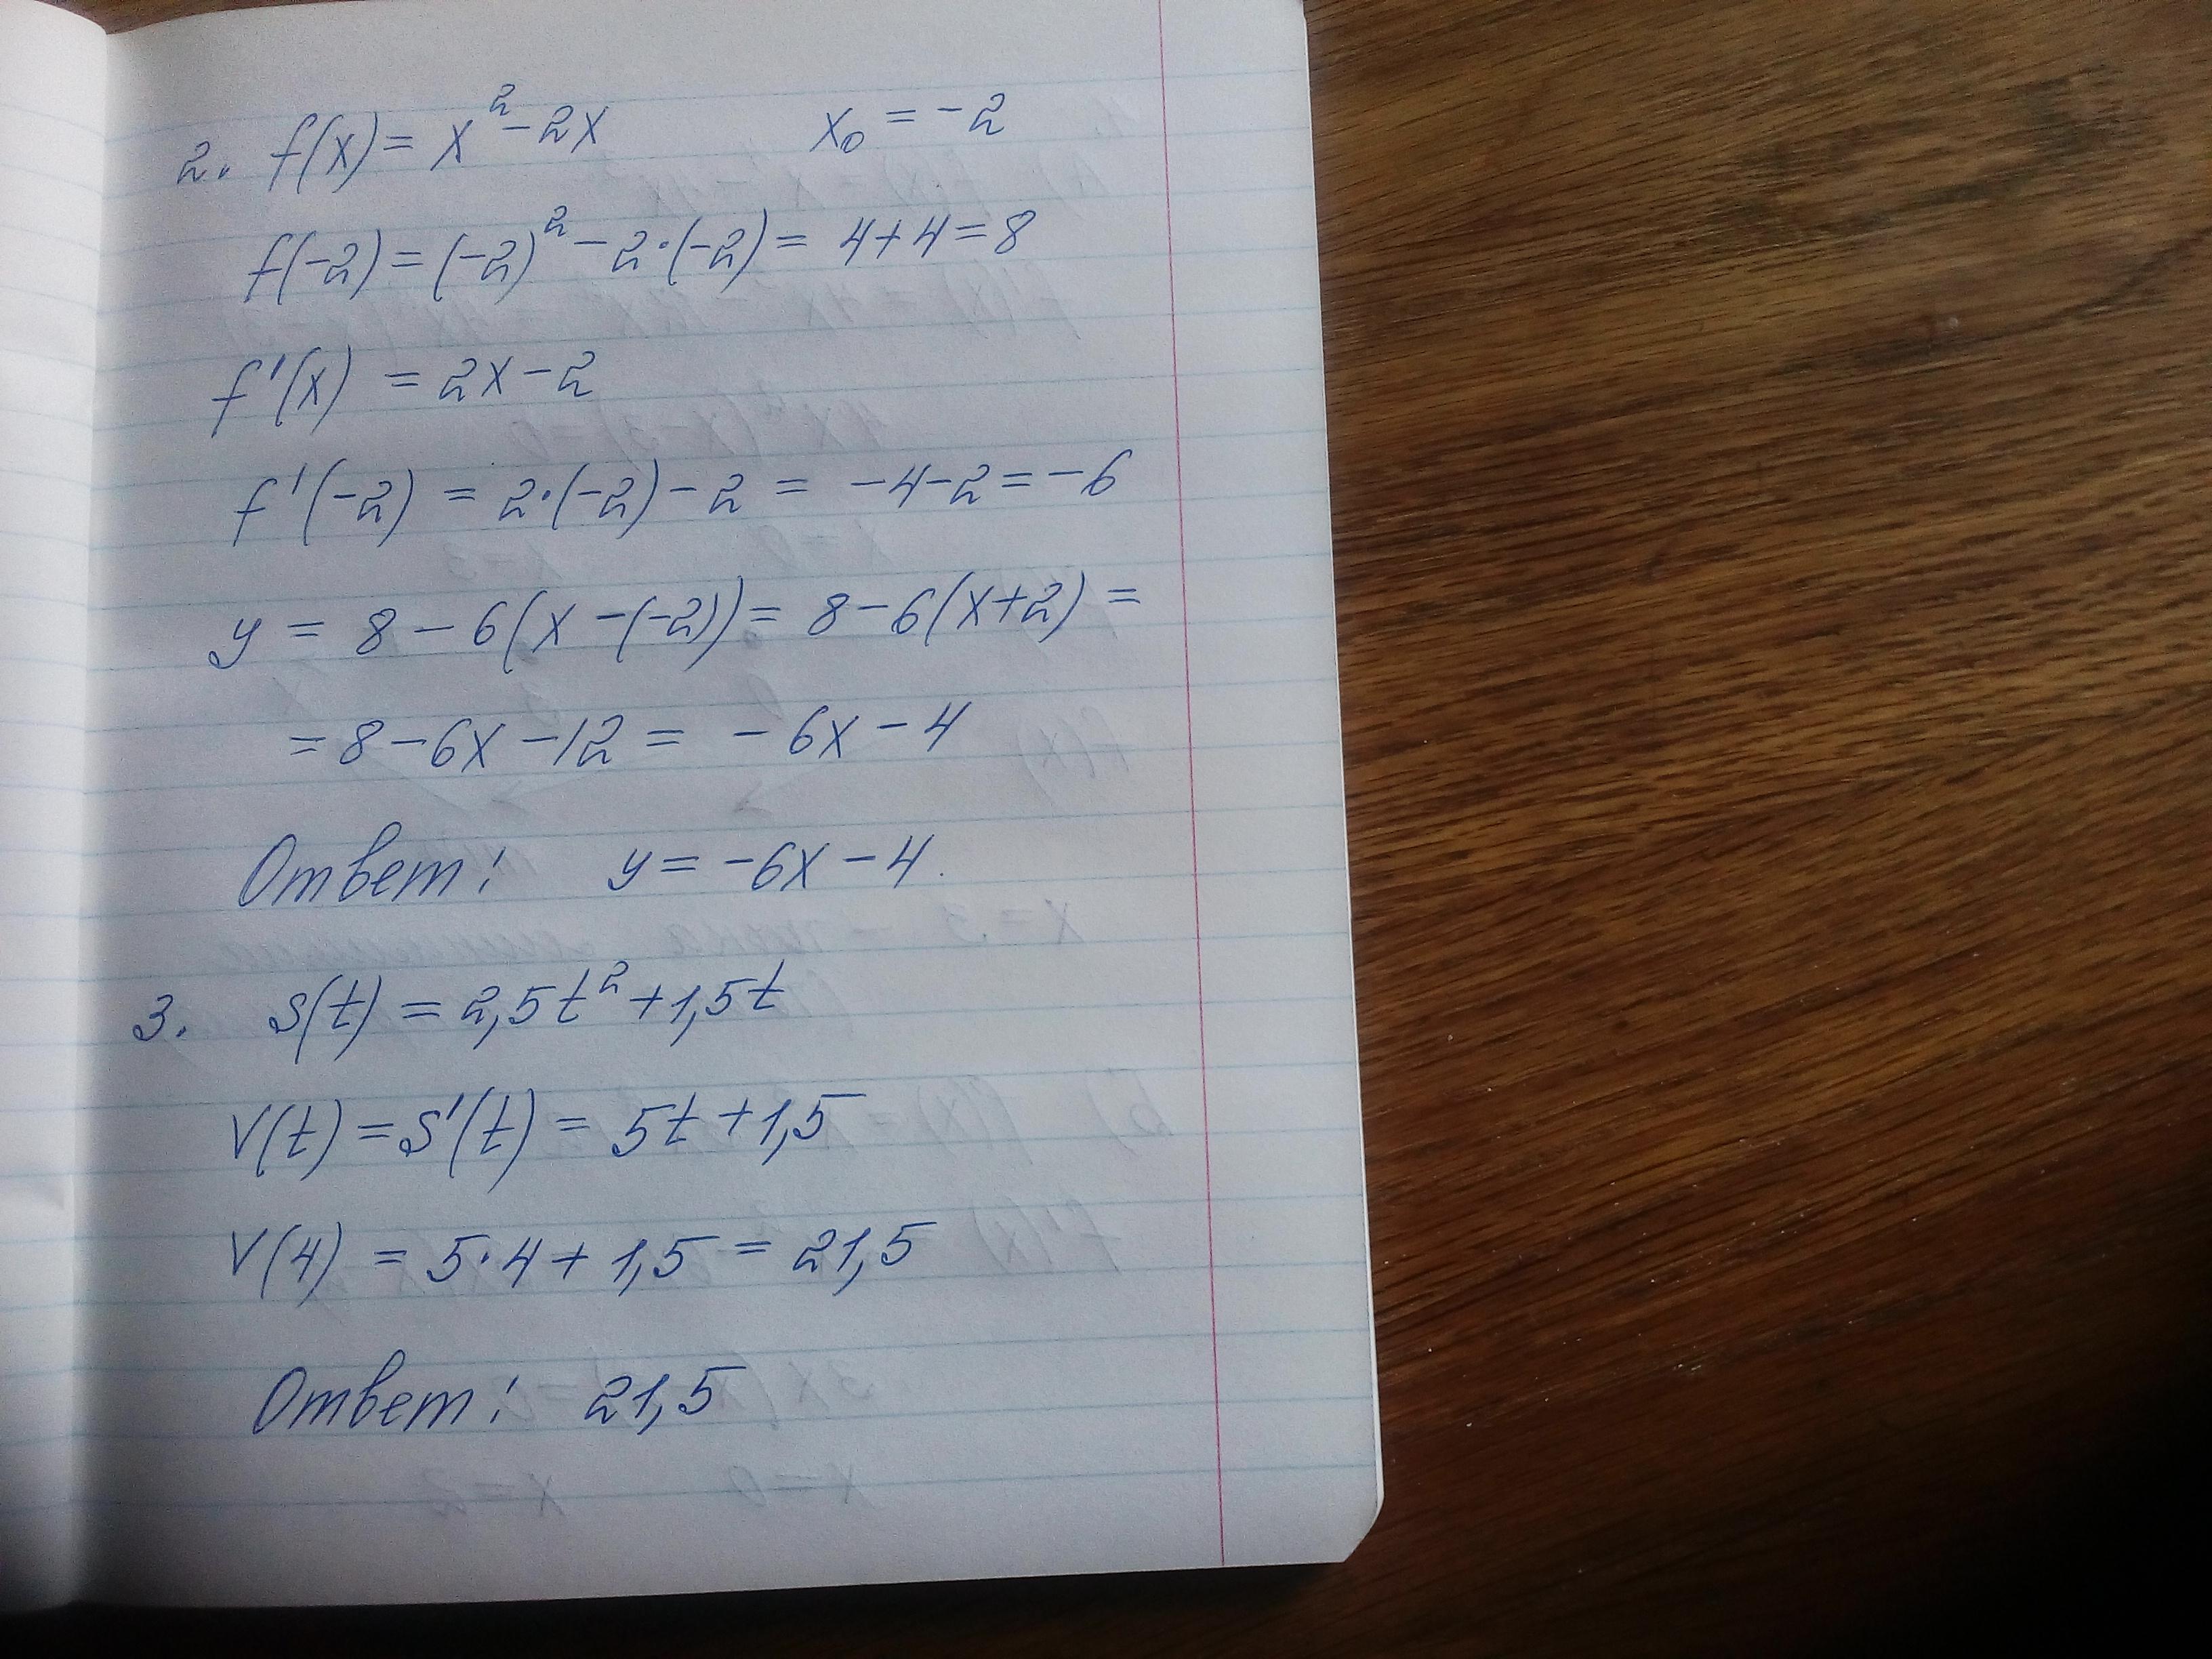 2. f(x) = x² - 2x x₀ = -2
f(-2) = (-2)² - 2·(-2) = 4+4=8
f'(x) = 2x-2
f'(-2) = 2·(-2) - 2 = -4-2=-6
y = 8 - 6(x-(-2)) = 8-6(x+2) =
= 8-6x-12 = -6x-4
Ответ: y = -6x-4.
3. S(t) = 2,5t² + 1,5t
V(t) = S'(t) = 5t+1,5
V(4) = 5·4 + 1,5 = 21,5
Ответ: 21,5